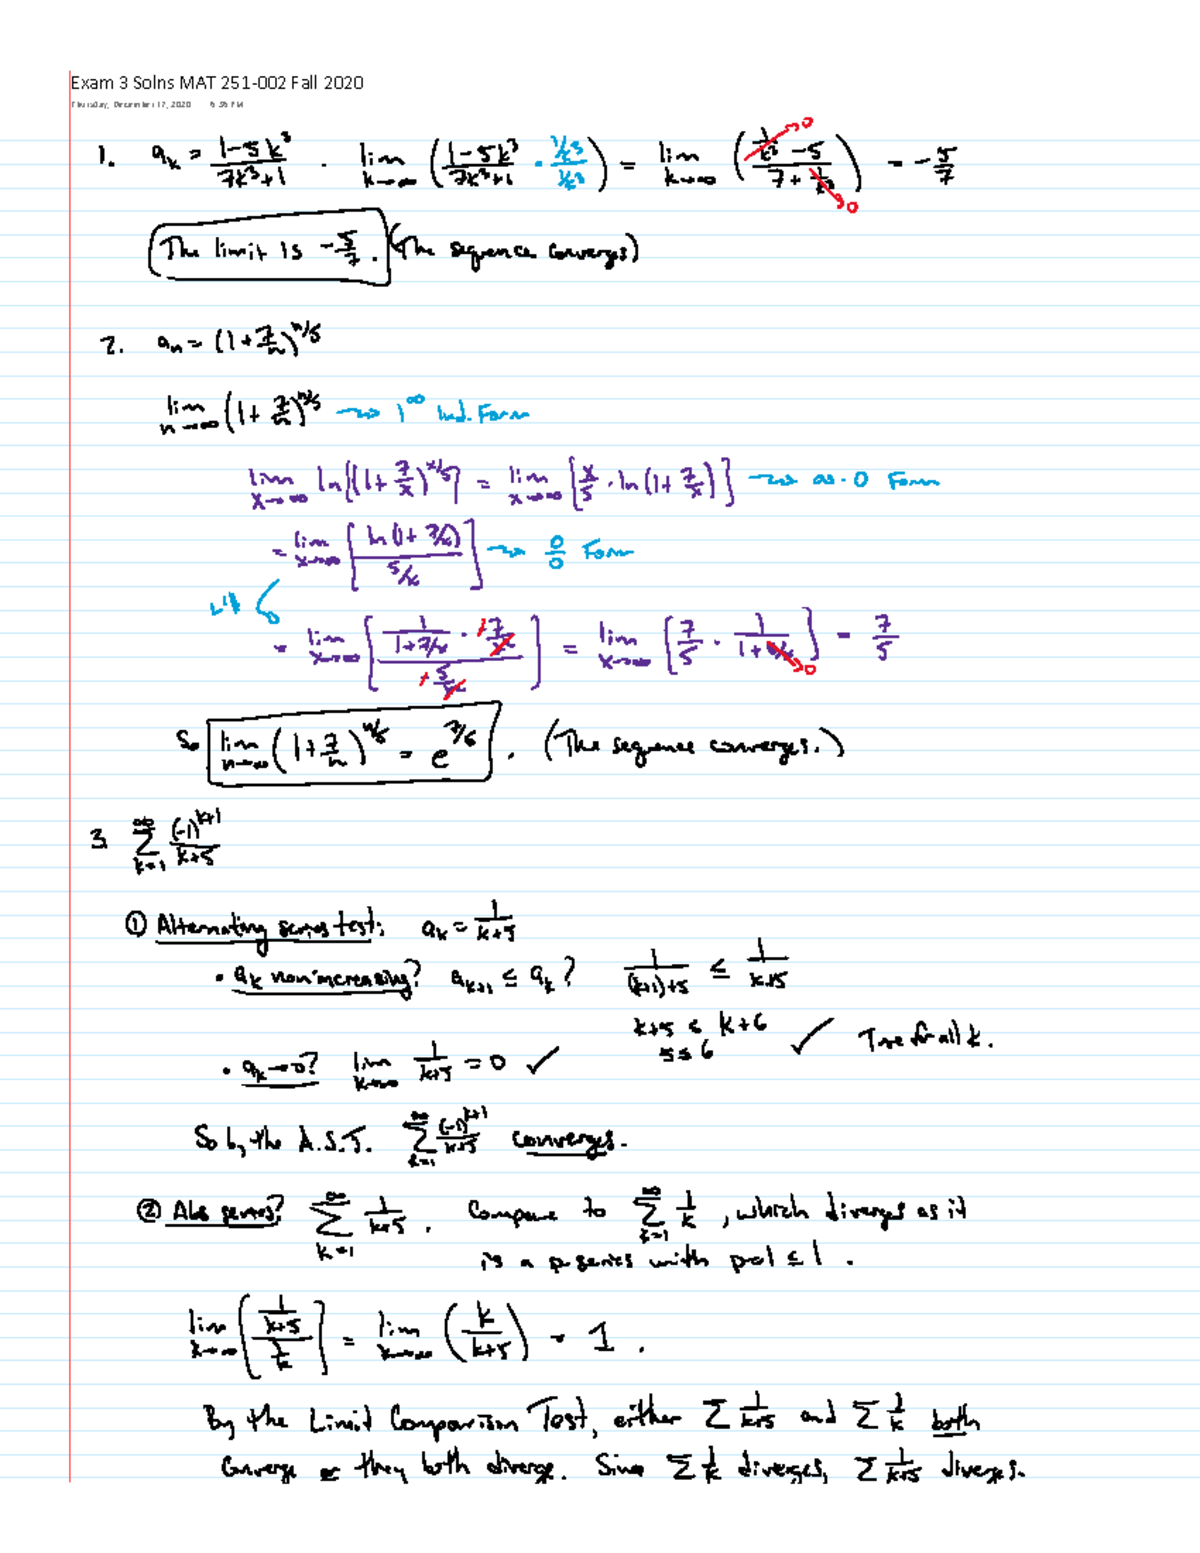 Exam 3 Solns MAT 251-002 Fall 2020
Thursday, December 17, 2020 6:36 PM
1. a_k = (1-5k^3)/(7k^3+1) . lim_{k→∞} ((1-5k^3)/(7k^3+1) · (1/k^3)/(1/k^3)) = lim_{k→∞} ((1/k^3 →0 - 5)/(7 + 1/k^3 →0)) = -5/7
The limit is -5/7. (The sequence converges)
2. a_n = (1+7/n)^{n/5}
lim_{n→∞} (1+7/n)^{n/5} ⇝ 1^∞ Ind. Form
lim_{x→∞} ln[(1+7/x)^{x/5}] = lim_{x→∞} [x/5 · ln(1+7/x)] ⇝ ∞·0 Form
= lim_{x→∞} [ln(1+7/x) / (5/x)] ⇝ 0/0 Form
L'H
= lim_{x→∞} [(1/(1+7/x) · +7/x^2) / (+5/x^2)] = lim_{x→∞} [7/5 · 1/(1+7/x →0)] = 7/5
So lim_{n→∞} (1+7/n)^{n/5} = e^{7/5} . (The sequence converges.)
3. ∑_{k=1}^∞ (-1)^{k+1}/(k+5)
① Alternating series test: a_k = 1/(k+5)
• a_k nonincreasing? a_{k+1} ≤ a_k ? 1/((k+1)+5) ≤ 1/(k+5)
k+5 ≤ k+6
5 ≤ 6 ✓ True for all k.
• a_k → 0? lim_{k→∞} 1/(k+5) = 0 ✓
So by the A.S.T. ∑_{k=1}^∞ (-1)^{k+1}/(k+5) converges.
② Abs series? ∑_{k=1}^∞ 1/(k+5) . Compare to ∑_{k=1}^∞ 1/k , which diverges as it
is a p-series with p=1 ≤ 1 .
lim_{k→∞} [(1/(k+5))/(1/k)] = lim_{k→∞} (k/(k+5)) = 1 .
By the Limit Comparison Test, either ∑ 1/(k+5) and ∑ 1/k both
converge or they both diverge. Since ∑ 1/k diverges, ∑ 1/(k+5) diverges.